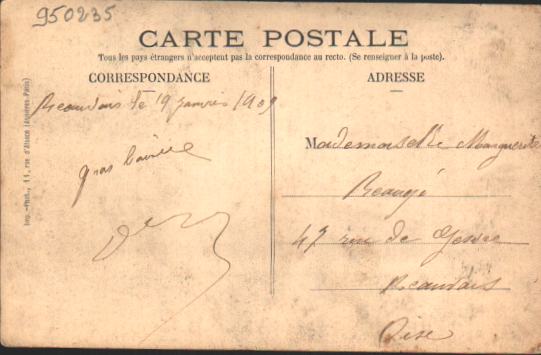 950235
CARTE POSTALE
Tous les pays étrangers n'acceptent pas la correspondance au recto. (Se renseigner à la poste).
CORRESPONDANCE
ADRESSE
Beauvais le 19 janvier 1909
gros
Mademoiselle Marguerite
47 rue de
Beauvais
Oise
11, rue d'Alsace (Asnières-Paris)